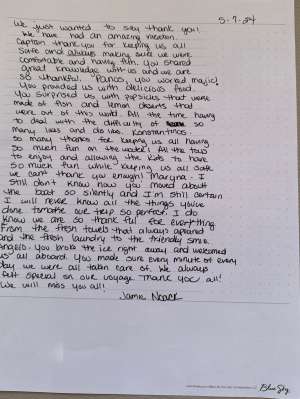 5-7-24
We just wanted to say thank you!
We have had an amazing vacation.
Captain thank you for keeping us all
safe and always making sure we were
comfortable and having fun. You shared
great knowledge with us and we are
so thankful. Panos, you worked magic!
You provided us with delicious food.
You surprised us with popsicles that were
made of fish and lemon deserts that
were out of this world. All the time having
to deal with the difficulty of so
many likes and dislikes. Konstantinos.
So many thanks for keeping us all having
so much fun on the water! All the toys
to enjoy and allowing the kids to have
so much fun while keeping us all safe
we can't thank you enough! Maryna. I
still don't know how you moved about
the boat so silently and I'm still certain
I will never know all the things you've
done to make our trip so perfect. I do
know we are so thankful for everything
from the fresh towels that always appeared
and the fresh laundry to the friendly smile.
Angelo. You broke the ice right away and welcomed
us all aboard. You made sure every minute of every
day we were all taken care of. We always
felt special on our voyage. Thank you all!
We will miss you all!
Jamie
Blue Sky